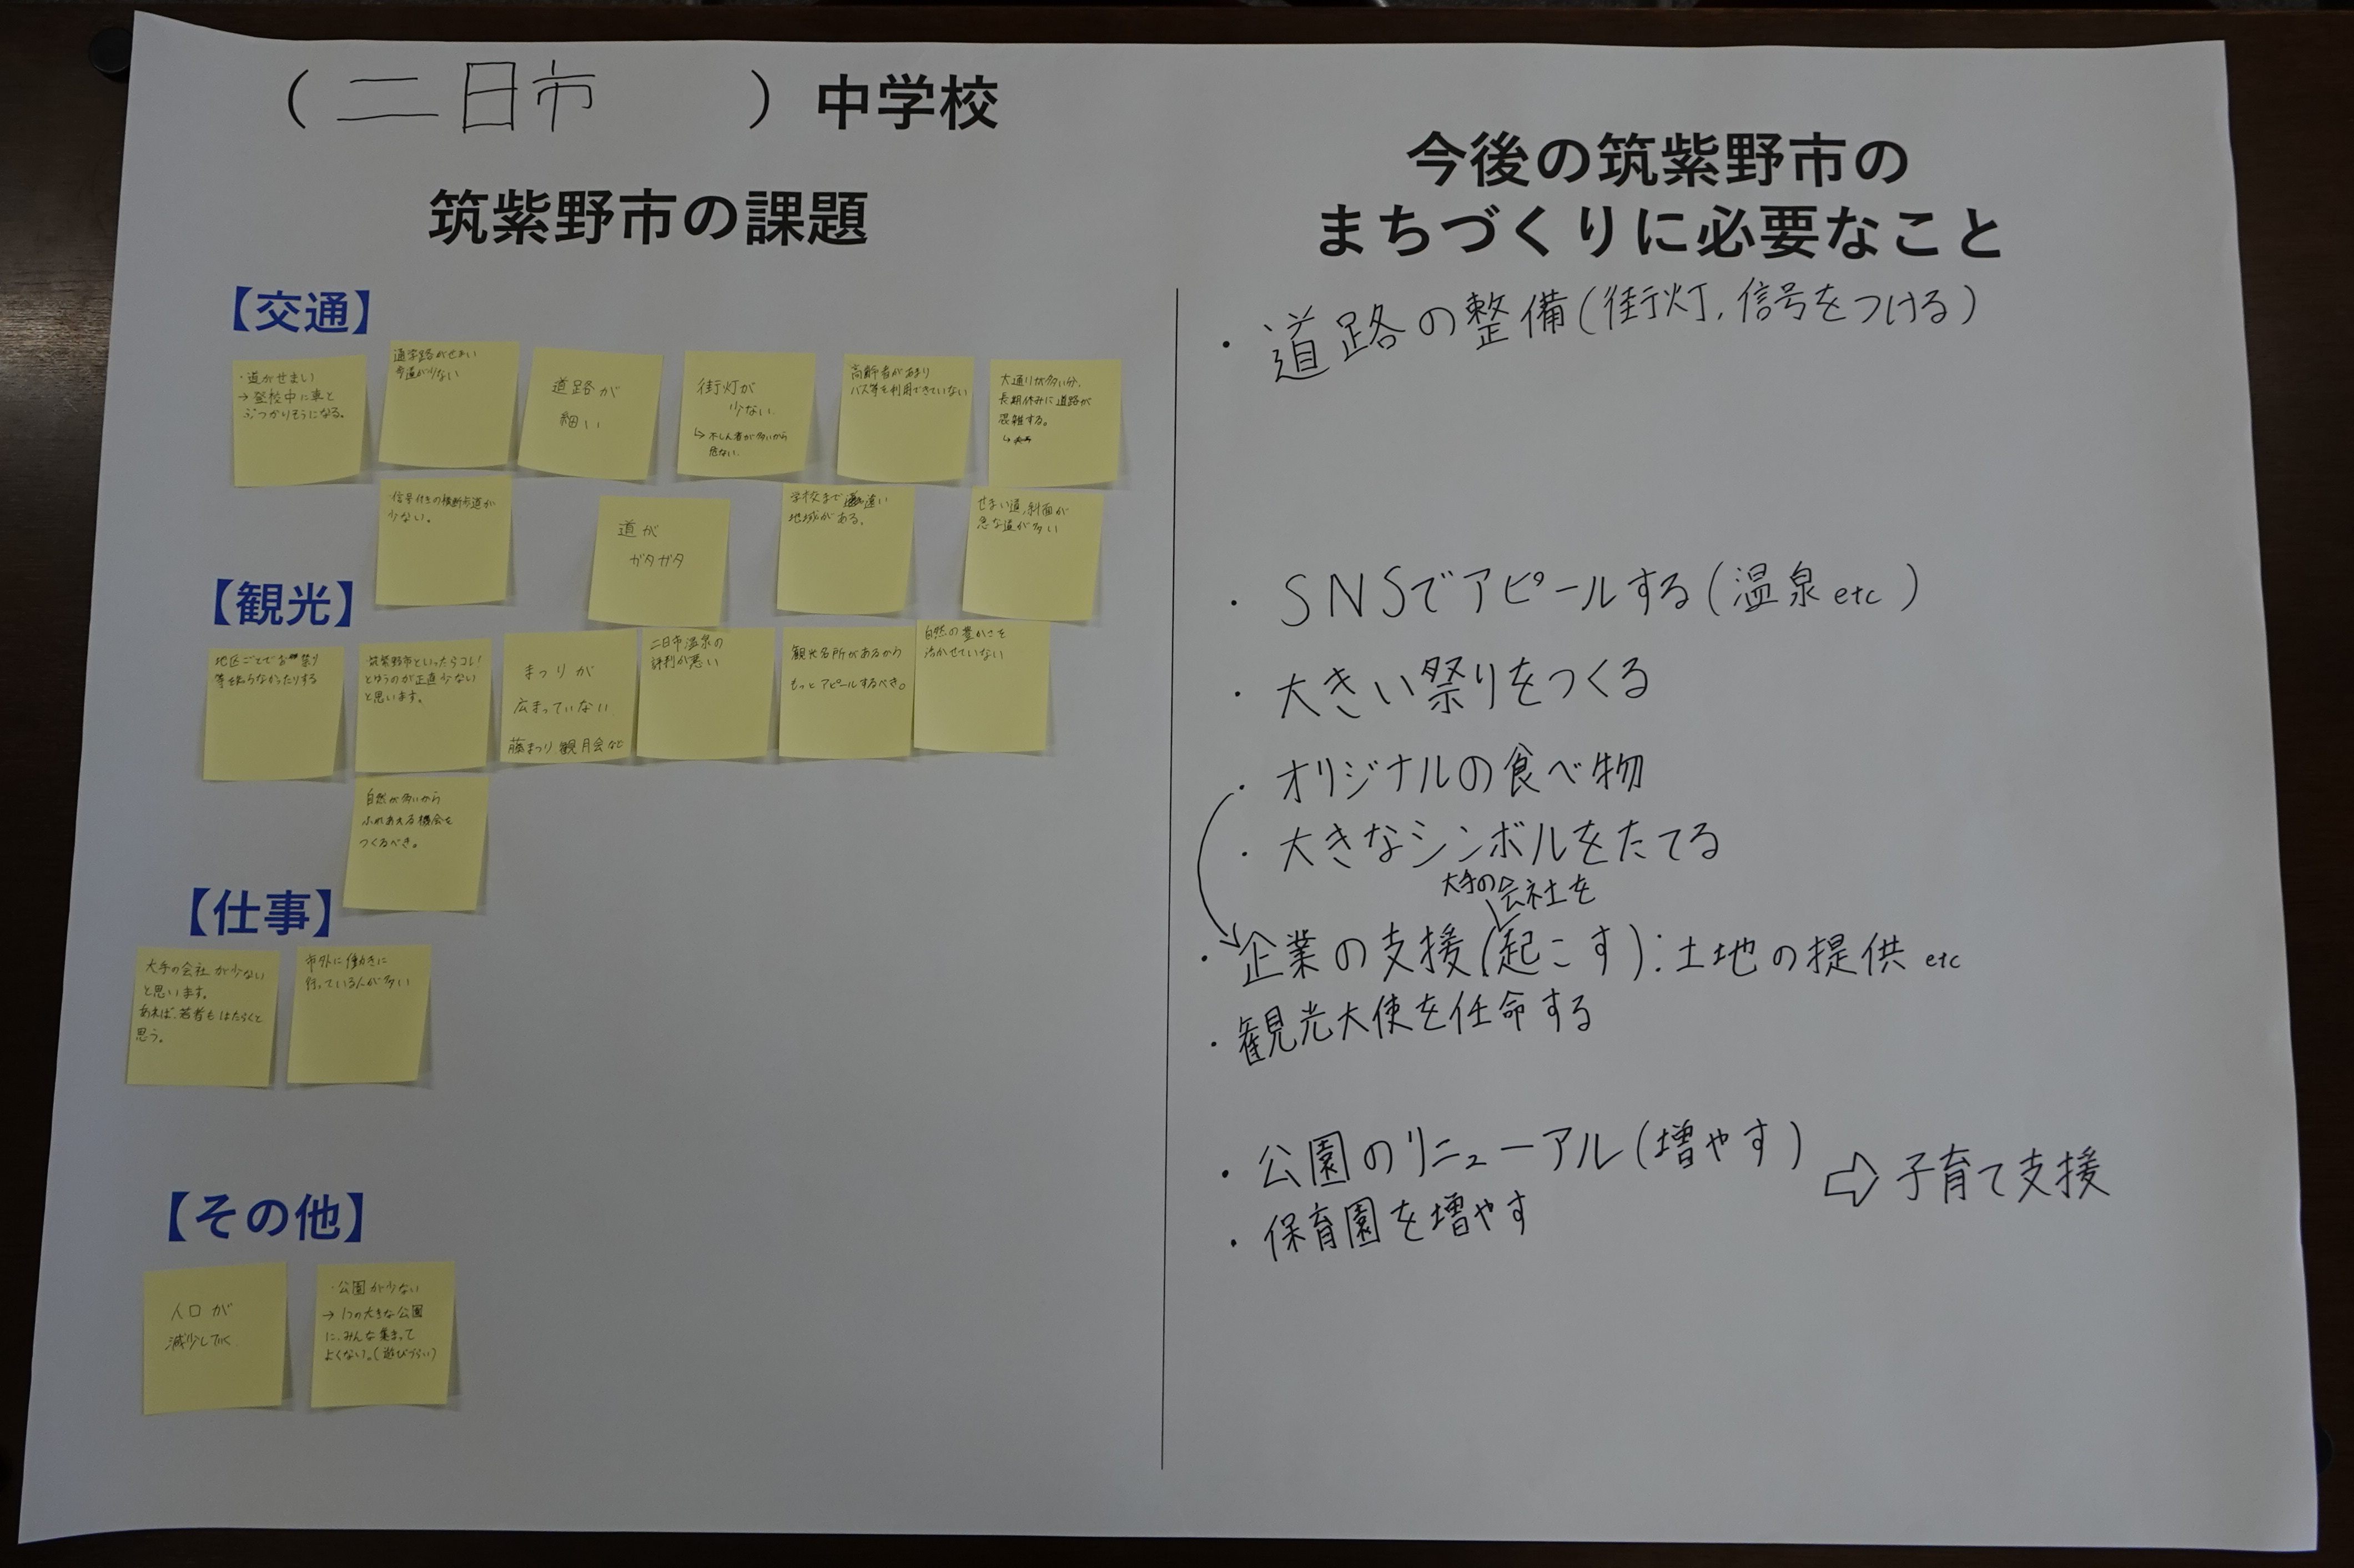 (二日市)中学校
筑紫野市の課題
【交通】
・道がせまい
→登校中に車と
ぶつかりそうになる。
通学路がせまい
歩道が少ない
道路が
細い
街灯が
少ない
↳不しん者が多いから
危ない。
高齢者があまり
バス等を利用できていない
大通りが多い分、
長期休みに道路が
混雑する。
信号付きの横断歩道が
少ない。
道が
ガタガタ
学校まで遠い
地域がある。
せまい道、斜面が
急な道が多い
【観光】
地区ごとでお祭り
等を知らなかったりする
筑紫野市といったらコレ!
とゆうのが正直少ない
と思います。
まつりが
広まっていない
藤まつり 観月会など
二日市温泉の
評判が悪い
観光名所があるから
もっとアピールするべき。
自然の豊かさを
活かせていない
自然が多いから
ふれあえる機会を
つくるべき。
【仕事】
大手の会社が少ない
と思います。
あれば、若者もはたらくと
思う。
市外に働きに
行っている人が多い
【その他】
人口が
減少していく
・公園が少ない
→1つの大きな公園
に、みんな集まって
よくない。(遊びづらい)
今後の筑紫野市の
まちづくりに必要なこと
・道路の整備(街灯,信号をつける)
・SNSでアピールする(温泉etc)
・大きい祭りをつくる
・オリジナルの食べ物
・大きなシンボルをたてる
大手の会社を
・企業の支援(起こす):土地の提供 etc
・観光大使を任命する
・公園のリニューアル(増やす)
⇨子育て支援
・保育園を増やす